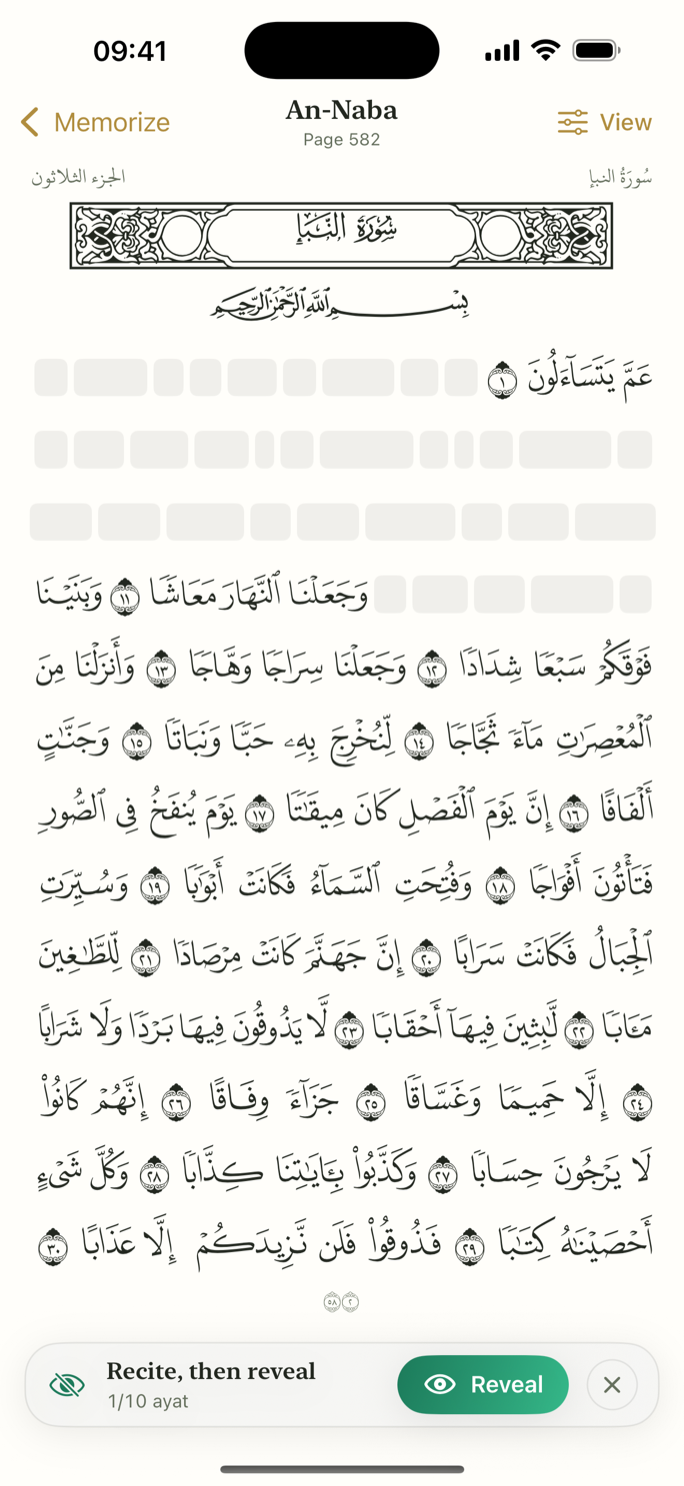 09:41
Memorize
An-Naba
Page 582
View
الجزء الثلاثون
سُورَةُ النبإ
سُورَةُ النَّبَإِ
بِسْمِ ٱللَّهِ ٱلرَّحْمَٰنِ ٱلرَّحِيمِ
عَمَّ يَتَسَآءَلُونَ ١
وَجَعَلْنَا ٱلنَّهَارَ مَعَاشًا ١١ وَبَنَيْنَا
فَوْقَكُمْ سَبْعًا شِدَادًا ١٢ وَجَعَلْنَا سِرَاجًا وَهَّاجًا ١٣ وَأَنزَلْنَا مِنَ
ٱلْمُعْصِرَٰتِ مَآءً ثَجَّاجًا ١٤ لِّنُخْرِجَ بِهِۦ حَبًّا وَنَبَاتًا ١٥ وَجَنَّٰتٍ
أَلْفَافًا ١٦ إِنَّ يَوْمَ ٱلْفَصْلِ كَانَ مِيقَٰتًا ١٧ يَوْمَ يُنفَخُ فِى ٱلصُّورِ
فَتَأْتُونَ أَفْوَاجًا ١٨ وَفُتِحَتِ ٱلسَّمَآءُ فَكَانَتْ أَبْوَٰبًا ١٩ وَسُيِّرَتِ
ٱلْجِبَالُ فَكَانَتْ سَرَابًا ٢٠ إِنَّ جَهَنَّمَ كَانَتْ مِرْصَادًا ٢١ لِّلطَّٰغِينَ
مَـَٔابًا ٢٢ لَّٰبِثِينَ فِيهَآ أَحْقَابًا ٢٣ لَّا يَذُوقُونَ فِيهَا بَرْدًا وَلَا شَرَابًا
٢٤ إِلَّا حَمِيمًا وَغَسَّاقًا ٢٥ جَزَآءً وِفَاقًا ٢٦ إِنَّهُمْ كَانُوا۟
لَا يَرْجُونَ حِسَابًا ٢٧ وَكَذَّبُوا۟ بِـَٔايَٰتِنَا كِذَّابًا ٢٨ وَكُلَّ شَىْءٍ
أَحْصَيْنَٰهُ كِتَٰبًا ٢٩ فَذُوقُوا۟ فَلَن نَّزِيدَكُمْ إِلَّا عَذَابًا ٣٠
٥٨ ٢
Recite, then reveal
1/10 ayat
Reveal